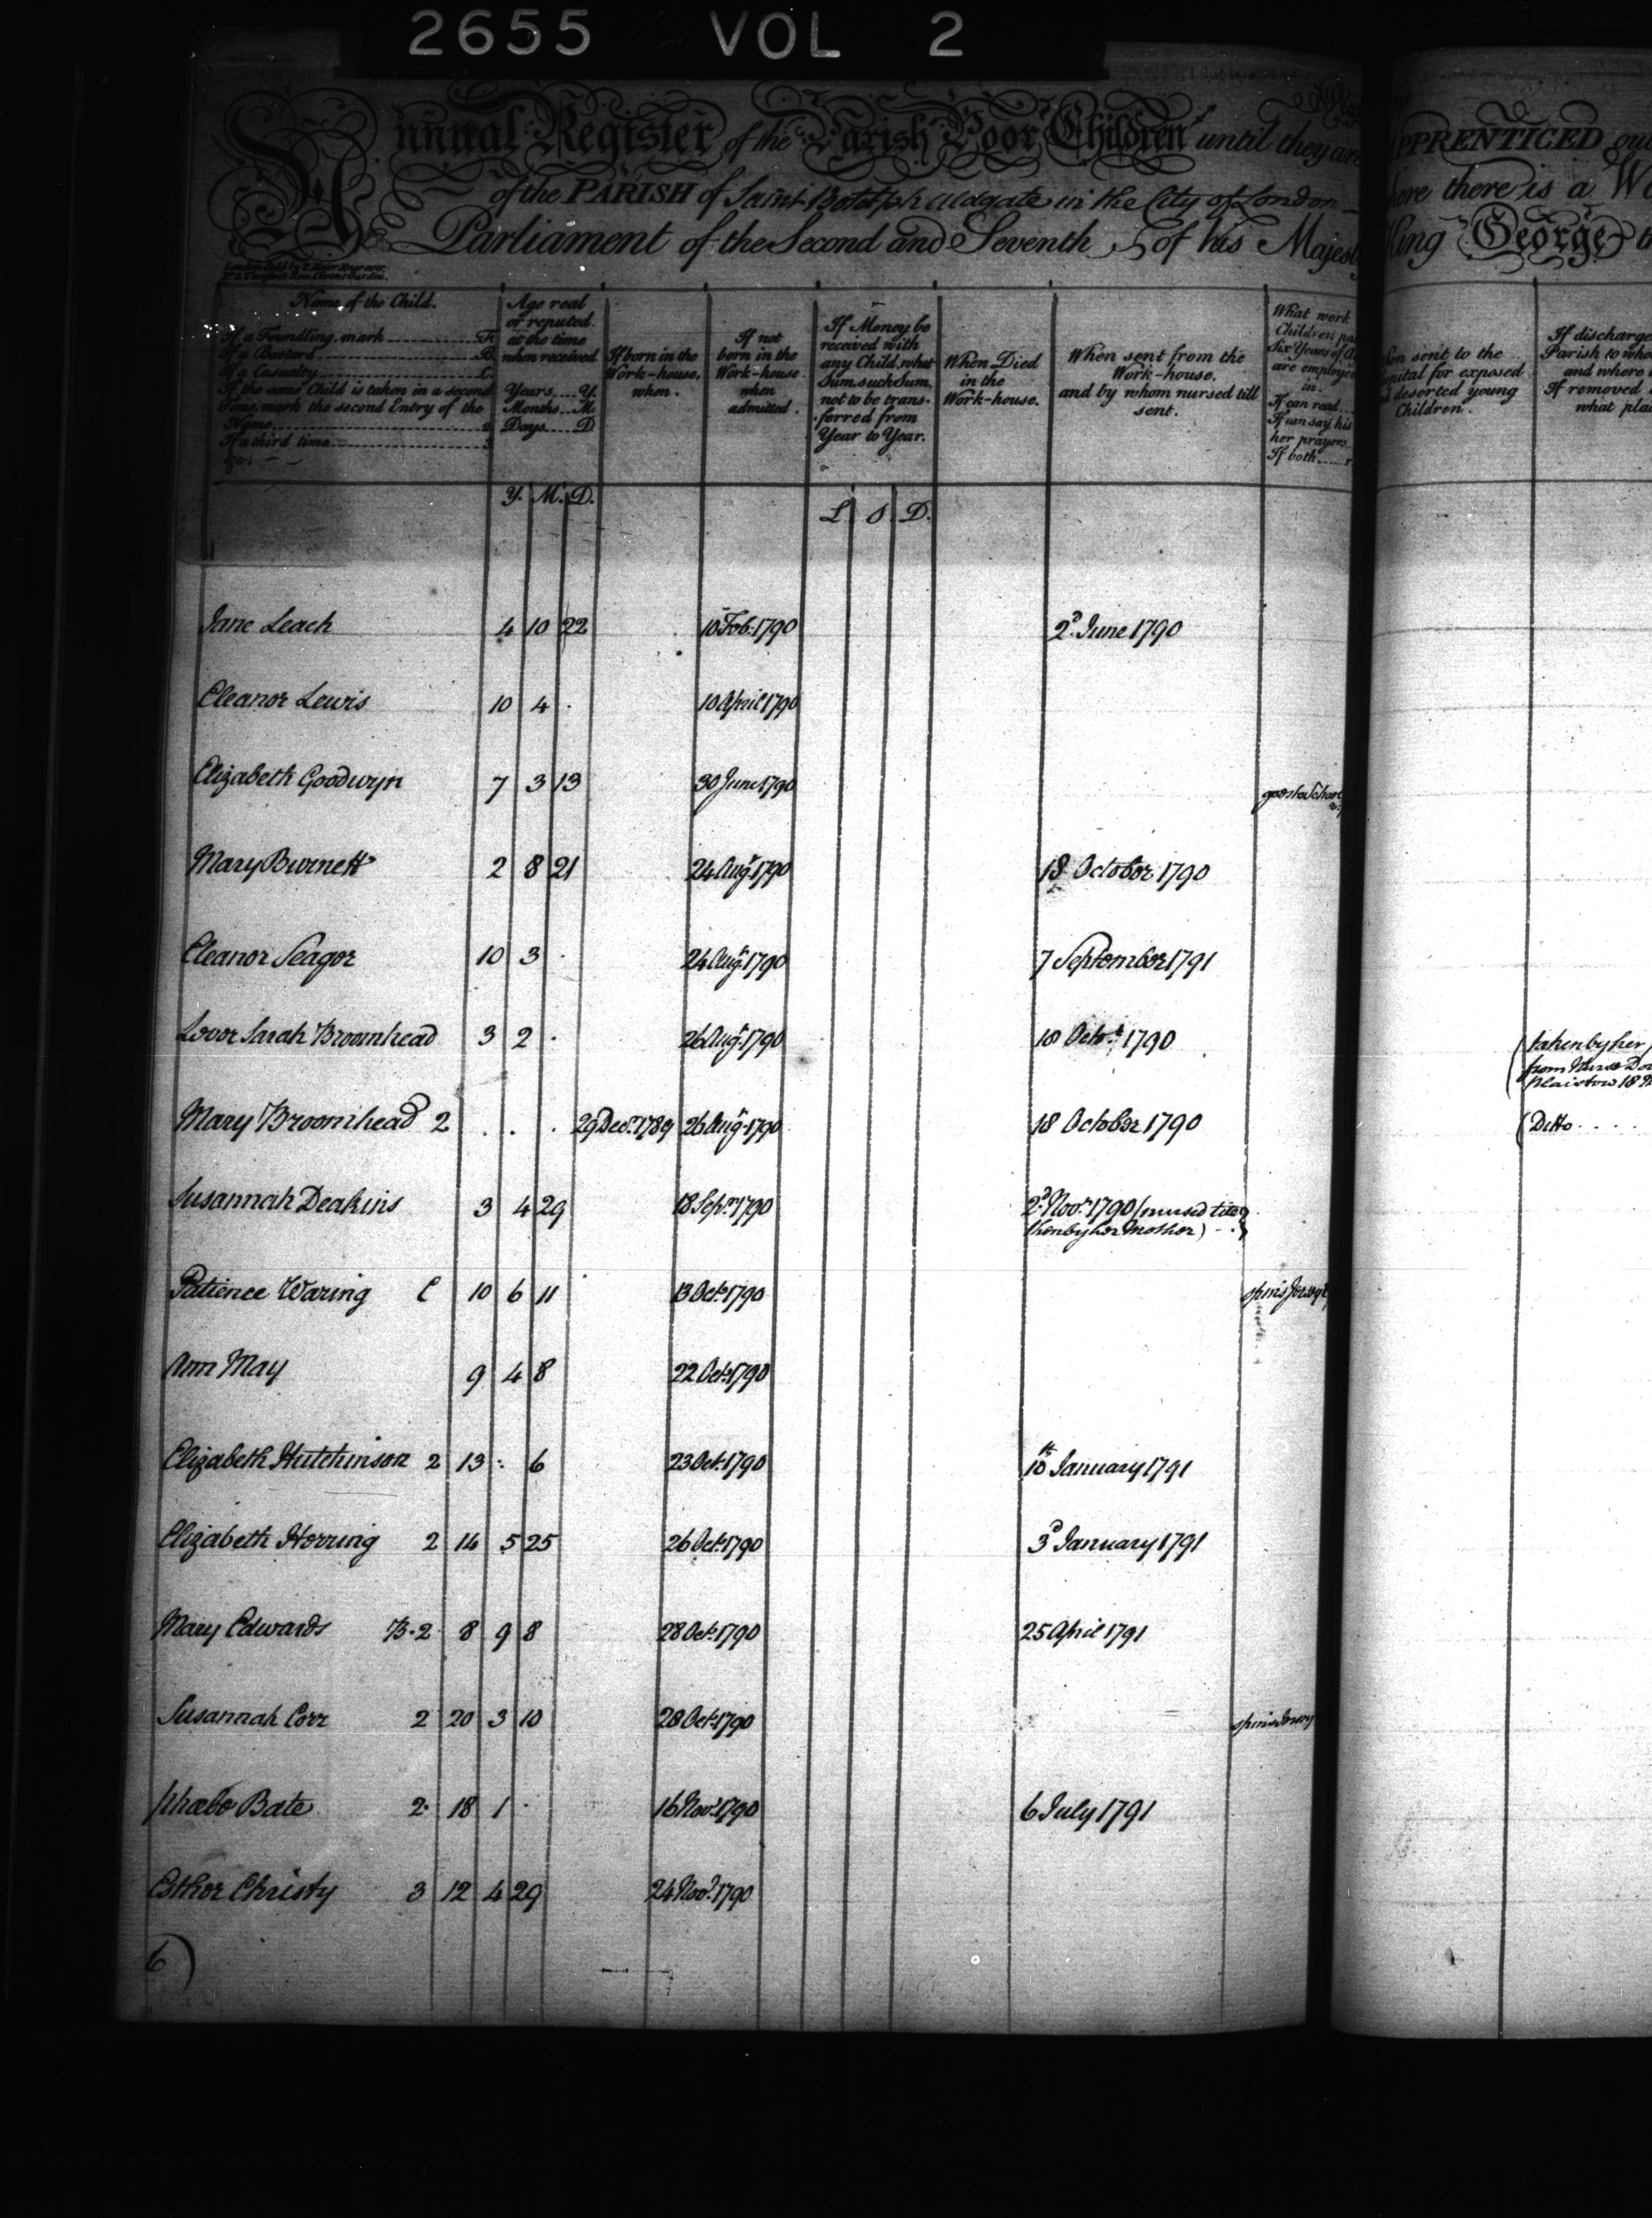 2655 VOL 2
Annual Register of the Parish Poor Children until they are
of the PARISH of Saint Botolph Aldgate in the City of London
Parliament of the Second and Seventh of his Majesty
APPRENTICED out
here there is a Wo
King George
Name of the Child.
If a Foundling mark F.
If a Bastard B.
If a Casualty C.
If the same Child is taken in a second
Time, mark the second Entry of the
Name 2
If a third time 3
&c.
Age real
or reputed
at the time
when received
Years Y.
Months M
Days D
If born in the
Work-house,
when.
If not
born in the
Work-house
when
admitted.
If Money be
received with
any Child, what
Sum, such Sum,
not to be trans-
ferred from
Year to Year.
When Died
in the
Work-house.
When sent from the
Work-house.
and by whom nursed till
sent.
What work
Children pa
Six Years of A
are employed
in.
If can read
If can say his
her prayers
If both
hen sent to the
ospital for exposed
d deserted young
Children.
If discharge
Parish to who
and where
If removed
what pla
Y. M. D.
L S D.
Jane Leach 4 10 22 10 Feb: 1790 2d. June 1790
Eleanor Lewis 10 4 . 10 April 1790
Elizabeth Goodwyn 7 3 13 30 June 1790 goes to School
Mary Burnett 2 8 21 24 Augt 1790 18 October 1790
Eleanor Seager 10 3 . 24 Augt. 1790 7 September 1791
Lover Sarah Broomhead 3 2 . 26 Augt. 1790 18 Octr. 1790
(taken by her
from Nurse Do
Plaistow 18 N
Mary Broomhead 2 . . . 29 Decr. 1789 26 Augt. 1790 18 October 1790 (Ditto . . . .
Susannah Deakins 3 4 29 18 Sepr. 1790 2d. Novr. 1790 (nursed till
then by her Mother) - -
Patience Waring C 10 6 11 13 Octr. 1790 spins Jersey
Ann May 9 4 8 22 Octr. 1790
Elizabeth Hutchinson 2 13 : 6 23 Oct. 1790 10th January 1791
Elizabeth Herring 2 14 5 25 26 Oct. 1790 3d January 1791
Mary Edwards B. 2 8 9 8 28 Oct. 1790 25 April 1791
Susannah Corr 2 20 3 10 28 Oct. 1790 spins Jersey
Phœbe Bate 2 18 1 . 16 Novr. 1790 6 July 1791
Esther Christy 3 12 4 29 24 Novr. 1790
6)